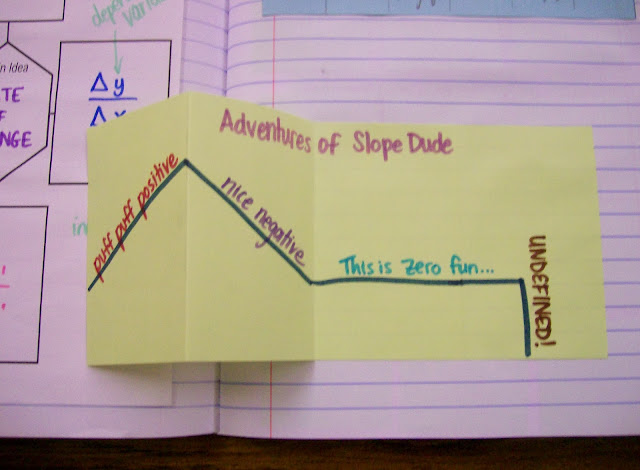 n Idea
TE
F
NGE
depen
varia
Δy
Δx
in
Adventures of Slope Dude
puff puff positive
nice negative
This is zero fun...
UNDEFINED!